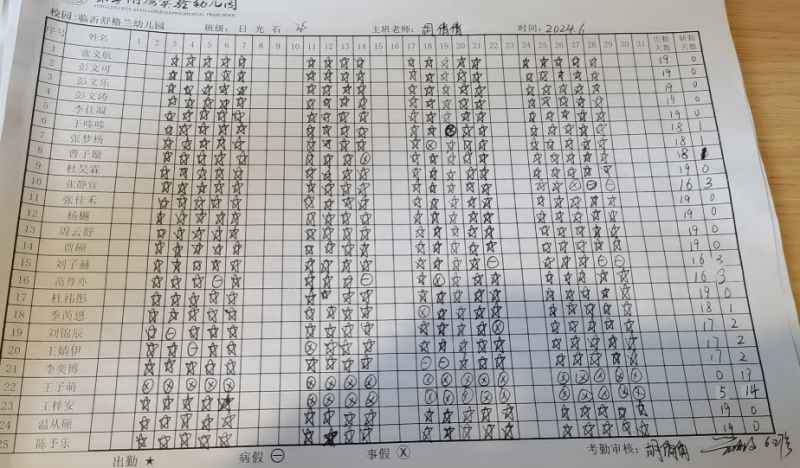 校园:临沂舒格兰幼儿园 班级: 日光石 主班老师: 胡倩倩 时间: 2024.6
序号 姓名 1 2 3 4 5 6 7 8 9 10 11 12 13 14 15 16 17 18 19 20 21 22 23 24 25 26 27 28 29 30 31 出勤天数 缺勤天数
1 张文航 19 0
2 彭文可 19 0
3 彭文乐 19 0
4 彭文涛 19 0
5 李佳凝 19 0
6 于哆哆 18 1
7 张梦杨 18 1
8 曹子璇 18 1
9 杜昊霖 19 0
10 张静宣 16 3
11 张佳禾 19 0
12 杨樾 19 0
13 周云舒 19 0
14 贾硕 19 0
15 刘子赫 16 3
16 范尊亦 16 3
17 杜祎彤 19 0
18 季芮恩 18 1
19 刘锦辰 17 2
20 王婧伊 17 2
21 李奕博 17 2
22 王子萌 0
23 王梓安 5 14
24 温从硕 19 0
25 陈予乐 19 0
出勤 ★ 病假 ⊖ 事假 ⊗ 考勤审核: 胡倩倩